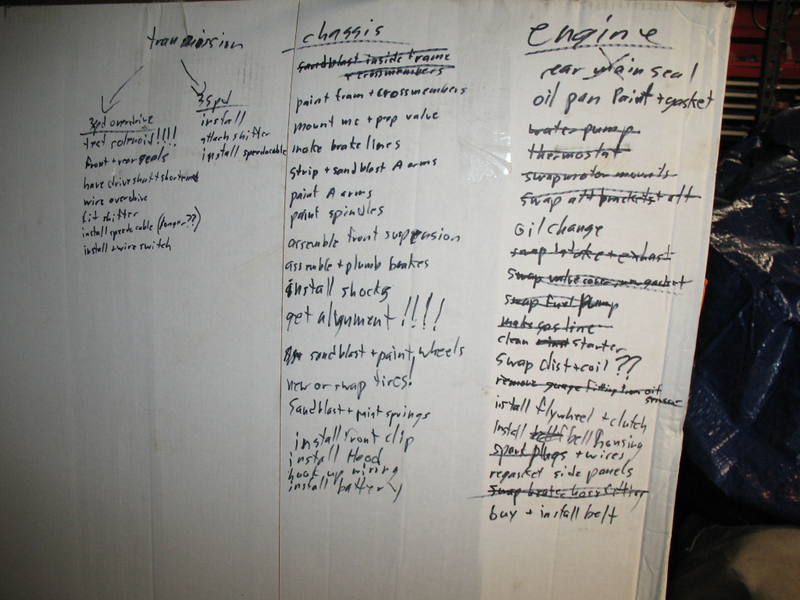 transmission
3spd overdrive
test solenoid !!!!
front + rear seals
have driveshaft shortened
wire overdrive
fit shifter
install speedcable (longer??)
install + wire switch
3spd
install
attach shifter
install speedcable
chassis
sandblast inside frame
+ crossmembers
paint fram + crossmembers
mount mc + prop valve
make brake lines
strip + sandblast A arms
paint A arms
paint spindles
assemble front suspension
assemble + plumb brakes
install shocks
get alignment !!!!
sandblast + paint wheels
new or swap tires!
Sandblast + paint springs
install front clip
install Hood
hook up wiring
install battery
engine
rear main seal
oil pan Paint + gasket
water pump
thermostat
swap motor mounts
swap alt brackets + alt
oil change
swap intake + exhast
swap valve cover, new gasket
swap fuel pump
make gas line
clean starter
swap dist + coil ??
remove guage fitting from oil
install flywheel + clutch
install bell housing
spark plugs + wires
regasket side panels
swap heater hose fitting
buy + install belt